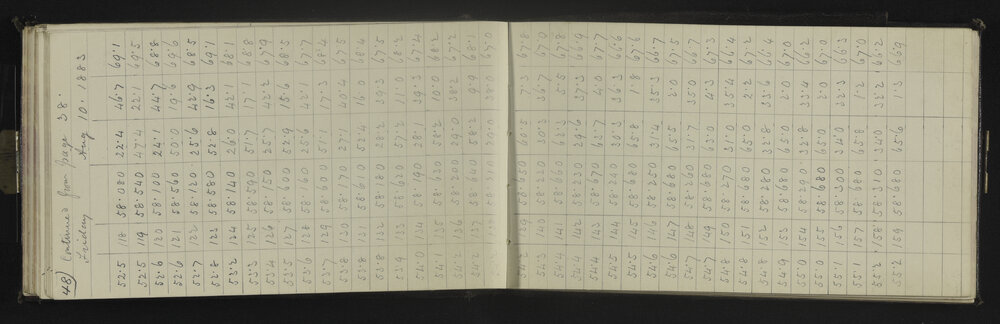 48) Continued from page 38.
Friday Aug 10. 1883
52.5 118 58.080 22.4 46.7 69.1
52.5 119 58.540 47.4 22.1 69.5
52.6 120 58.100 24.1 44.7 68.8
52.6 121 58.560 50.0 19.6 69.6
52.7 122 58.120 25.6 42.9 68.5
52.8 123 58.580 52.8 16.3 69.1
53.2 124 58.140 26.0 42.1 68.1
53.3 125 58.590 51.7 17.1 68.8
53.4 126 58.150 25.7 42.2 67.9
53.5 127 58.600 52.9 15.6 68.5
53.6 128 58.160 25.6 42.1 67.7
53.7 129 58.600 51.1 17.3 68.4
53.8 130 58.170 27.1 40.4 67.5
53.8 131 58.610 52.4 16.0 68.4
53.8 132 58.180 28.2 39.3 67.5
53.9 133 58.620 57.2 11.0 68.2
54.0 134 58.190 28.1 39.3 67.4
54.1 135 58.630 58.2 10.0 68.2
54.2 136 58.200 29.0 38.2 67.2
54.2 137 58.640 58.2 9.9 68.1
29.0 38.0 67.0
54.2 139 58.650 60.5 7.3 67.8
54.3 140 58.220 30.3 36.7 67.0
54.4 141 58.660 62.3 5.5 67.8
54.4 142 58.230 29.6 37.3 66.9
54.5 143 58.670 63.7 4.0 67.7
144 58.240 30.3 36.3 66.6
54.5 145 58.680 65.8 1.8 67.6
54.6 146 58.250 31.4 35.3 66.7
54.6 147 58.680 65.5 2.0 67.5
54.7 148 58.260 31.7 35.0 66.7
54.7 149 58.680 63.0 4.3 67.3
54.8 150 58.270 31.0 35.4 66.4
54.8 151 58.680 65.0 2.2 67.2
54.8 152 58.280 32.8 33.6 66.4
54.9 153 58.680 65.0 2.0 67.0
55.0 154 58.290 32.8 33.4 66.2
55.0 155 58.680 65.0 2.0 67.0
55.1 156 58.300 34.0 32.3 66.3
55.1 157 58.680 65.8 1.2 67.0
55.2 158 58.310 34.0 32.2 66.2
55.2 159 58.680 65.6 1.3 66.9